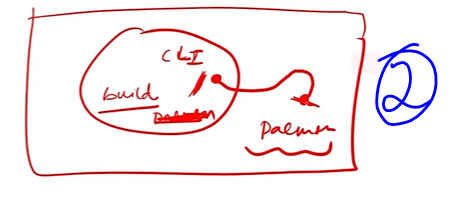 CLI
build
Daemon
2